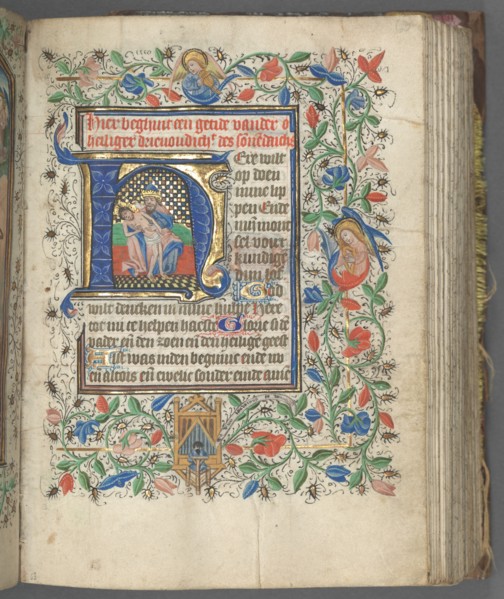 Hier beghint een getide vander o
heiliger drievoudich^t. des sonendachs
HEre wilt
op doen
mine lip
pen Ende
mijn mont
sel voert
kundighe
dijn lof
God
wilt dencken in mine hulpe Here
tot mi te helpen haeste Glorie si dē
vader eñ den zoen eñ dē heilighē geest
Alst was inden beghinne ende nv
eñ altois eñ ewelic sonder einde amē